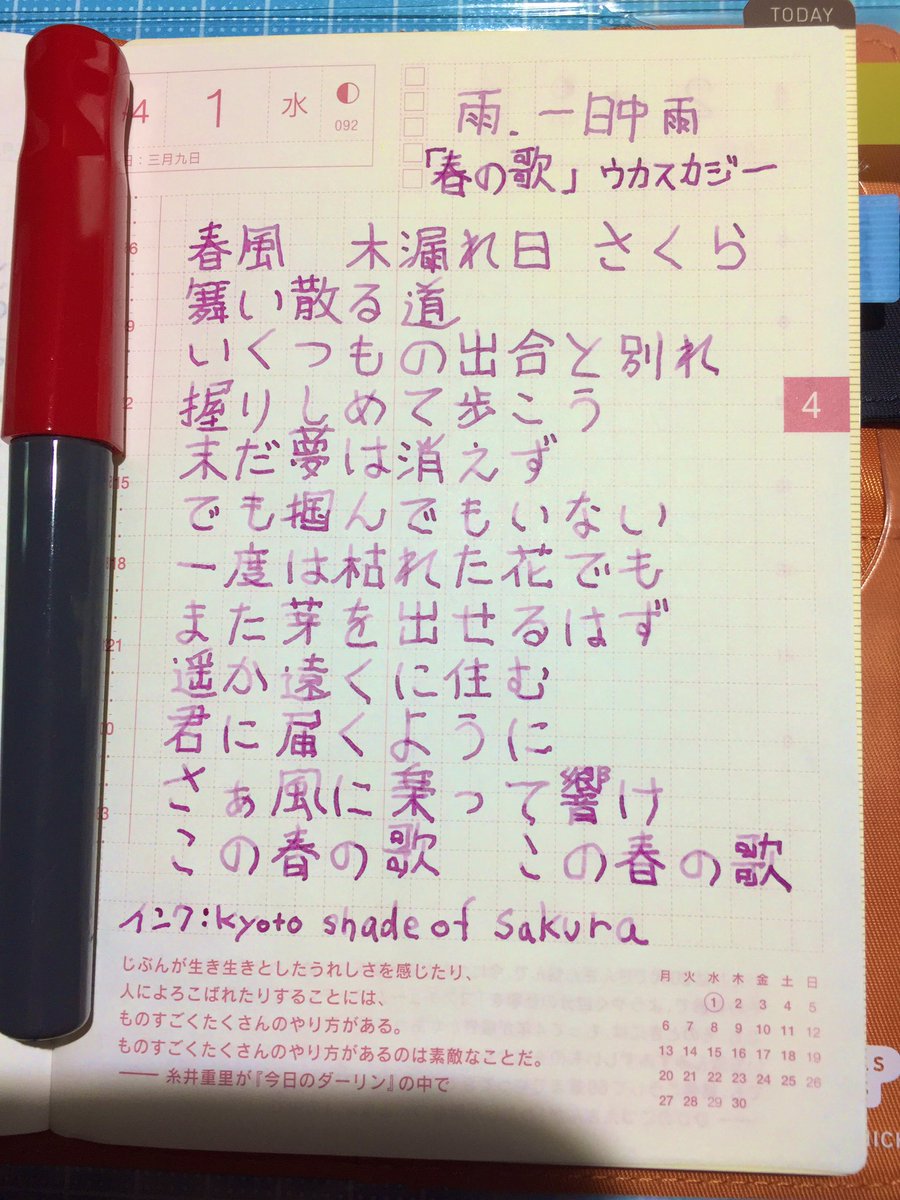 TODAY
4 1 水
092
三月九日
雨.一日中雨
「春の歌」ウカスカジー
春風 木漏れ日 さくら
舞い散る道
いくつもの出合と別れ
握りしめて歩こう
末だ夢は消えず
でも掴んでもいない
一度は枯れた花でも
また芽を出せるはず
遥か遠くに住む
君に届くように
さぁ風に乗って響け
この春の歌 この春の歌
インク:kyoto shade of sakura
4
じぶんが生き生きとしたうれしさを感じたり、
人によろこばれたりすることには、
ものすごくたくさんのやり方がある。
ものすごくたくさんのやり方があるのは素敵なことだ。
—— 糸井重里が『今日のダーリン』の中で
月 火 水 木 金 土 日
1 2 3 4 5
6 7 8 9 10 11 12
13 14 15 16 17 18 19
20 21 22 23 24 25 26
27 28 29 30